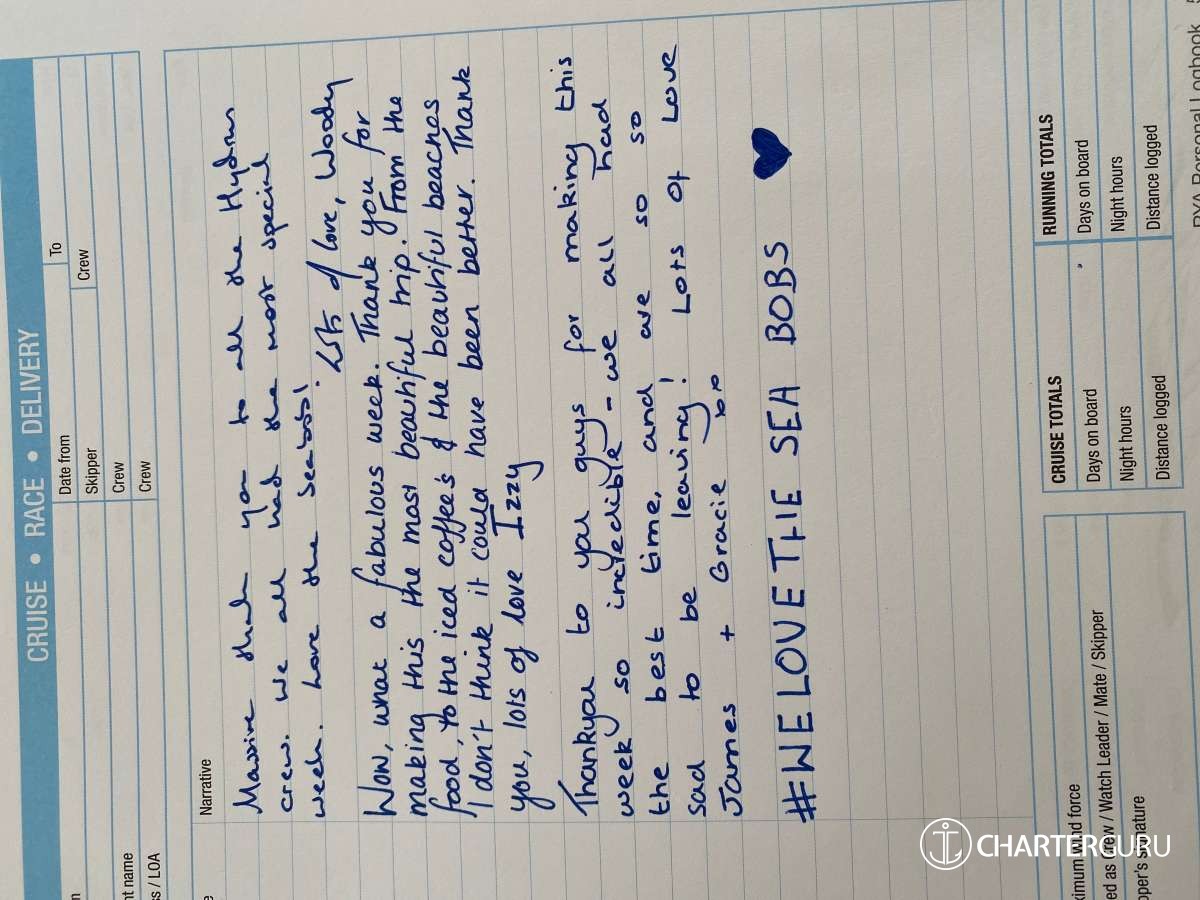 CRUISE • RACE • DELIVERY
Date from
To
Skipper
Crew
Crew
Crew
nt name
s / LOA
Narrative
Massive thank you to all the Hydrus
crew. We all had the most special
week. Love the seabobs!
Lots of love, Woody
Wow, what a fabulous week. Thank you for
making this the most beautiful trip. From the
food, to the iced coffee's & the beautiful beaches
I don't think it could have been better. Thank
you, lots of love Izzy
Thankyou to you guys for making this
week so incredible - we all had
the best time, and are so so
sad to be leaving! Lots of Love
James + Gracie xox
#WE LOVE THE SEA BOBS ♥
ximum wind force
ed as Crew / Watch Leader / Mate / Skipper
pper's signature
CRUISE TOTALS
Days on board
Night hours
Distance logged
RUNNING TOTALS
Days on board
Night hours
Distance logged
RYA Personal Logbook
CHARTERGURU